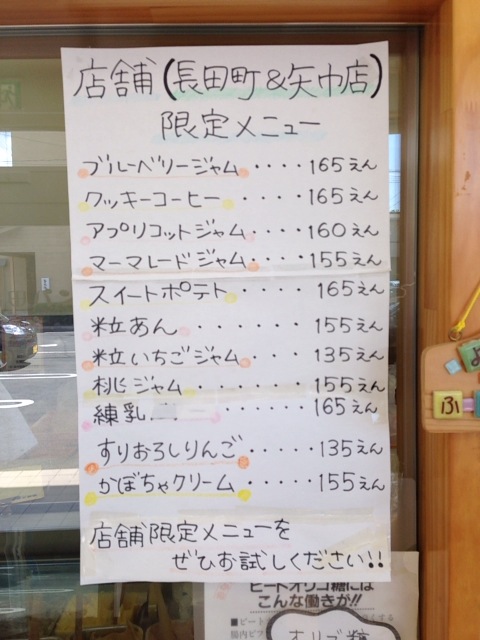 店舗(長田町&矢巾店)
限定メニュー
ブルーベリージャム・・・・165えん
クッキーコーヒー・・・・165えん
アプリコットジャム・・・・160えん
マーマレードジャム・・・155えん
スイートポテト・・・・165えん
粒あん・・・・・・155えん
粒いちごジャム・・・135えん
桃ジャム・・・・・・155えん
練乳・・・・・・165えん
すりおろしりんご・・・・・135えん
かぼちゃクリーム・・・・・155えん
店舗限定メニューを
ぜひお試しください!!
ビートオリゴ糖には
こんな働きが!!
オリゴ糖
ふ